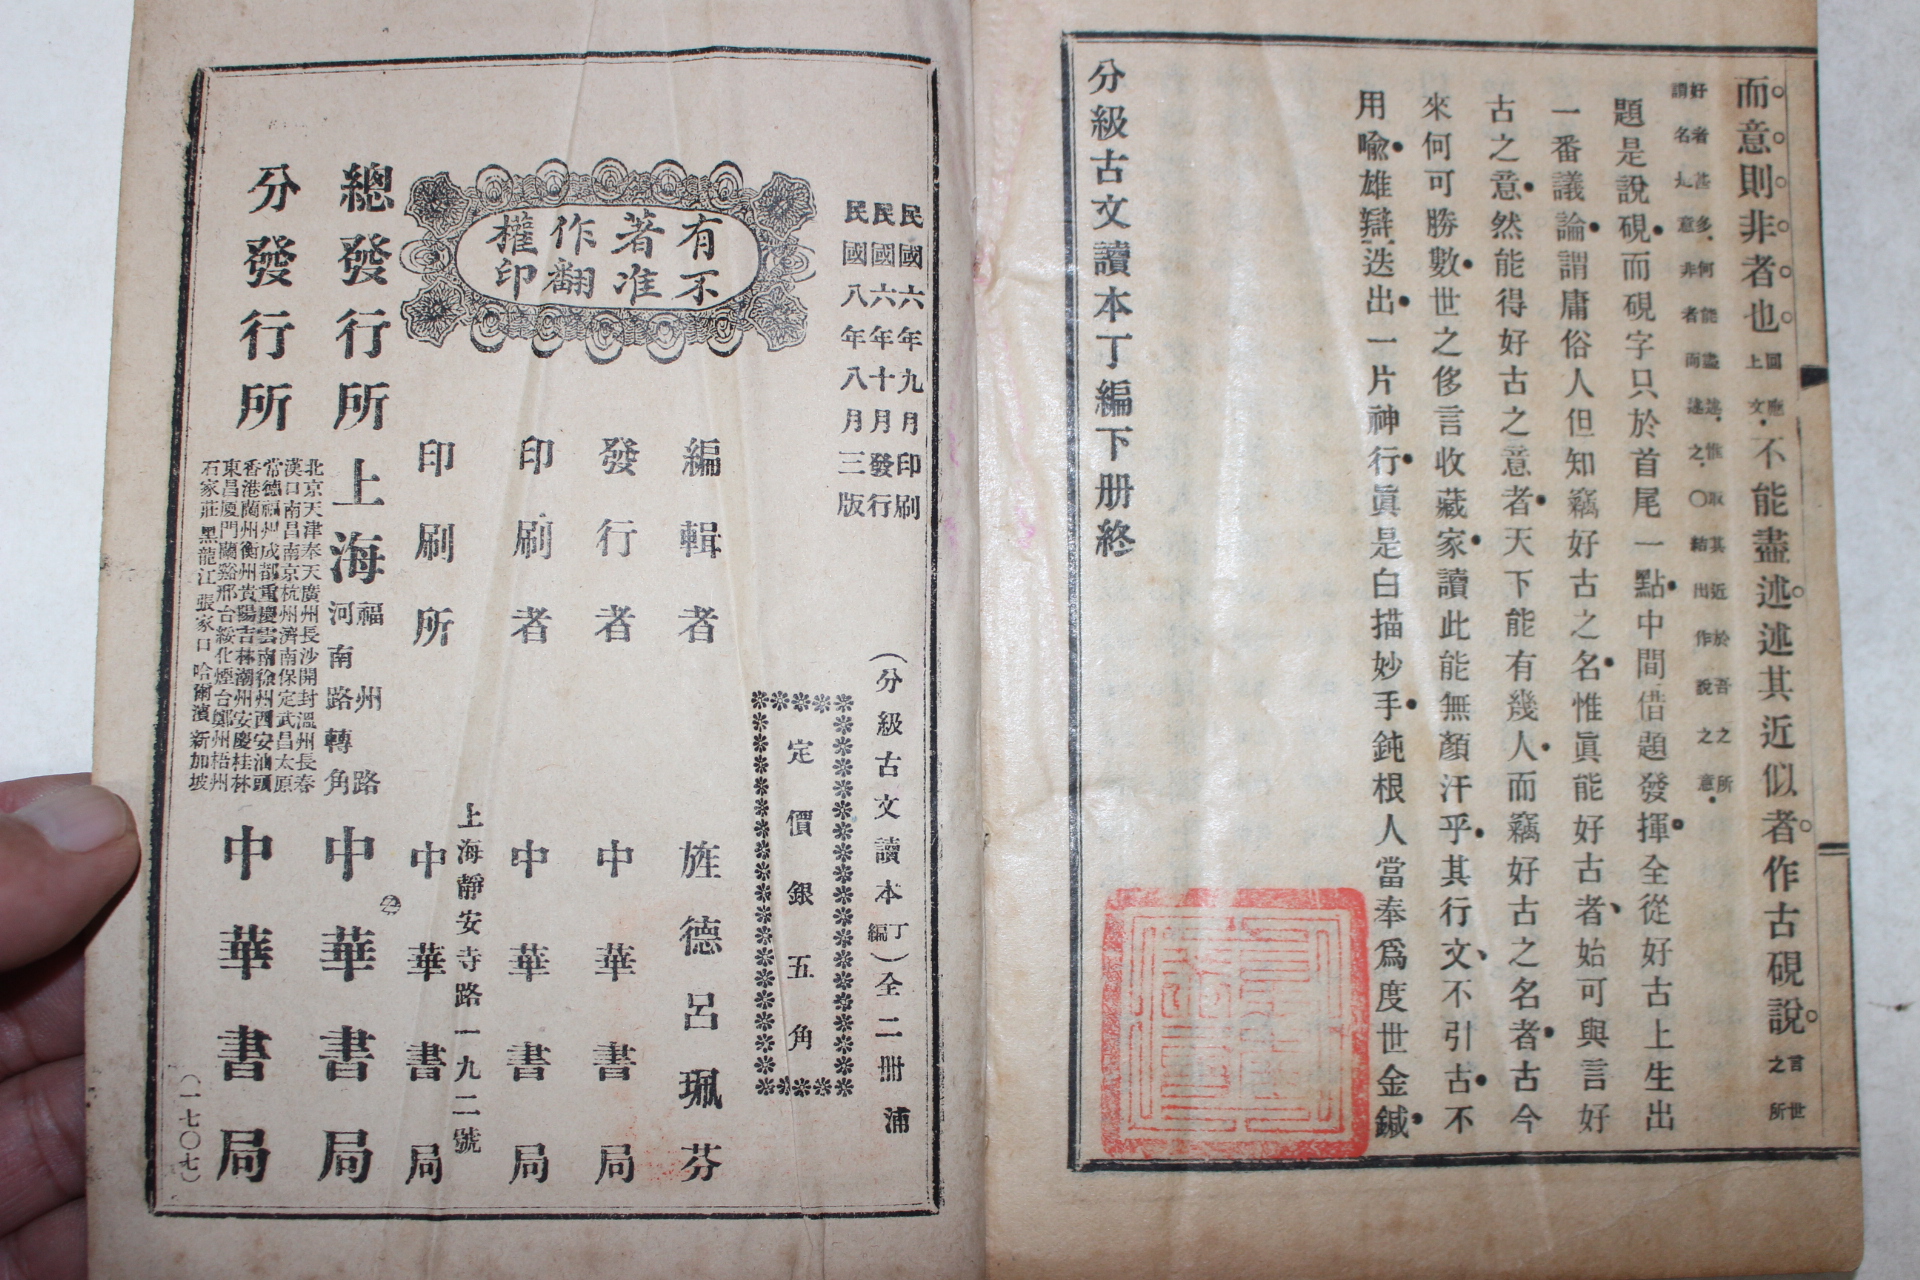 而意則非者也回應上文不能盡述述其近似者作古硯說言世之所
好者甚多何能盡述惟取其近於吾之所
謂名是意非者而述之〇結出作說之意
題是說硯而硯字只於首尾一點中間借題發揮全從好古上生出
一番議論謂庸俗人但知竊好古之名惟眞能好古者始可與言好
古之意然能得好古之意者天下能有幾人而竊好古之名者古今
來何可勝數世之侈言收藏家讀此能無顏汗乎其行文不引古不
用喩雄辯迭出一片神行眞是白描妙手鈍根人當奉爲度世金鍼
分級古文讀本丁編下册終
民國六年九月印刷
民國六年十月發行
民國八年八月三版
(分級古文讀本丁編)全二册 浦
定價銀五角
有著作權
不准翻印
編輯者 旌德呂珮芬
發行者 中華書局
印刷者 中華書局
上海靜安寺路一九二號
印刷所 中華書局
總發行所 上海福州路河南路轉角 中華書局
分發行所 中華書局
北京天津奉天廣州長沙開封溫州長春
漢口南昌南京杭州濟南保定武昌太原
常德福州成都重慶雲南徐州西安汕頭
香港蘭州衡州貴陽吉林潮州安慶桂林
東昌廈門蘭谿邢台綏化煙台鄭州梧州
石家莊 黑龍江 張家口 哈爾濱 新加坡
(一七〇七)